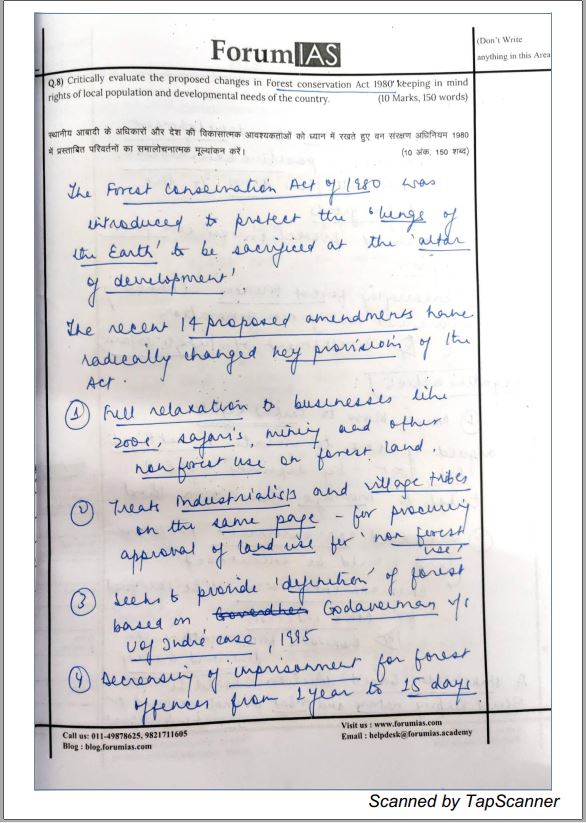 Forum IAS
(Don't Write
anything in this Area
Q.8) Critically evaluate the proposed changes in Forest conservation Act 1980' keeping in mind
rights of local population and developmental needs of the country. (10 Marks, 150 words)
स्थानीय आबादी के अधिकारों और देश की विकासात्मक आवश्यकताओं को ध्यान में रखते हुए वन संरक्षण अधिनियम 1980
में प्रस्तावित परिवर्तनों का समालोचनात्मक मूल्यांकन करें। (10 अंक, 150 शब्द)
The Forest Conservation Act of 1980 was
introduced to protect the 'lungs of
the Earth' to be sacrificed at the 'altar
of development'
The recent 14 proposed amendments have
radically changed key provisions of the
Act.
① Full relaxation to businesses like
zoos, safari's, mining and other
non forest use on forest land.
② Treats industrialists and village tribes
on the same page - for procuring
approval of land use for 'non forest
use'
③ Seeks to provide 'definition' of forest
based on Godavarman v/s
UoI case, 1995
④ Decreasing of imprisonment for forest
offences from 1 year to 15 days
Call us: 011-49878625, 9821711605
Blog : blog.forumias.com
Visit us : www.forumias.com
Email : helpdesk@forumias.academy
Scanned by TapScanner